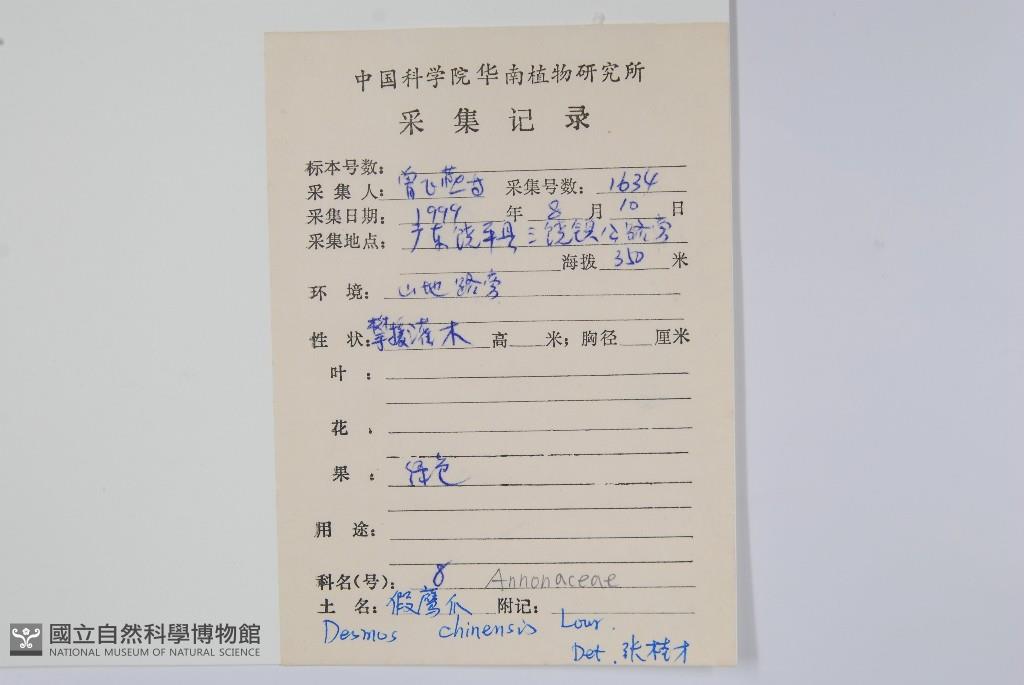 中国科学院华南植物研究所
采集记录
标本号数:
采集人: 曾飞燕等 采集号数: 1634
采集日期: 1999 年 8 月 10 日
采集地点: 广东饶平县三饶镇公路旁
海拨 350 米
环境: 山地路旁
性状: 攀援灌木 高 米; 胸径 厘米
叶:
花:
果: 绿色
用途:
科名(号): 8 Annonaceae
土名: 假鹰爪 附记:
Desmos chinensis Lour.
Det. 张桂才
國立自然科學博物館
NATIONAL MUSEUM OF NATURAL SCIENCE